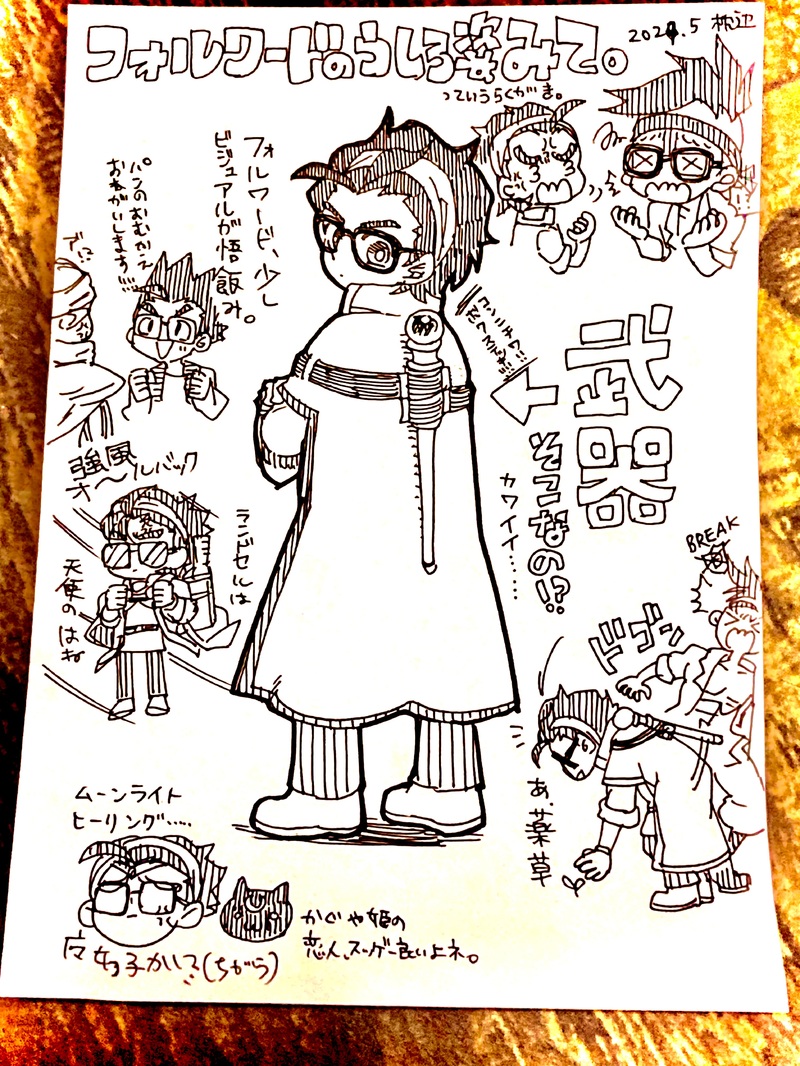 フォルワードのうしろ姿みて。
2024.5 枕辺
っていうらくがき。
フォルワード、少し
ビジュアルが悟飯み。
パンのおむかえ
おねがいします!!!
でに
コンニチワ!!
武器
そこなの!?
カワイイ……
強風
オールバック
ランドセルは
天使のはね
BREAK
ドゴン
あ、薬草
ムーンライト
ヒーリング……
かぐや姫の
恋人、スゲー良いよネ。
女子かい?(ちがう)